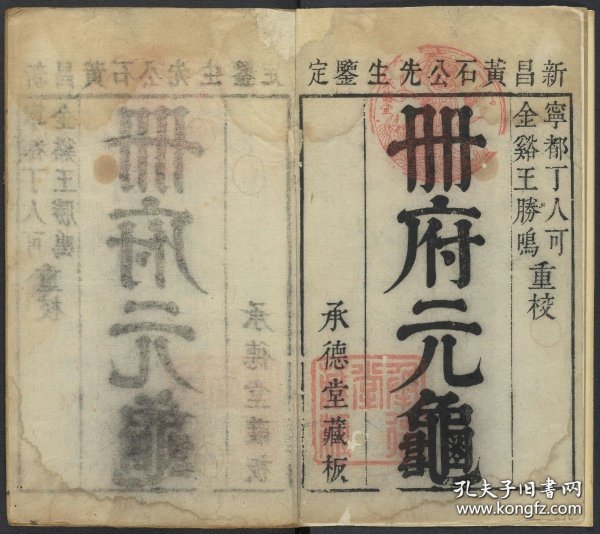 新昌黃石公先生鑒定
寧都丁人可
金谿王勝鳴
重校
冊府元龜
承德堂藏板
孔夫子旧书网
www.kongfz.com